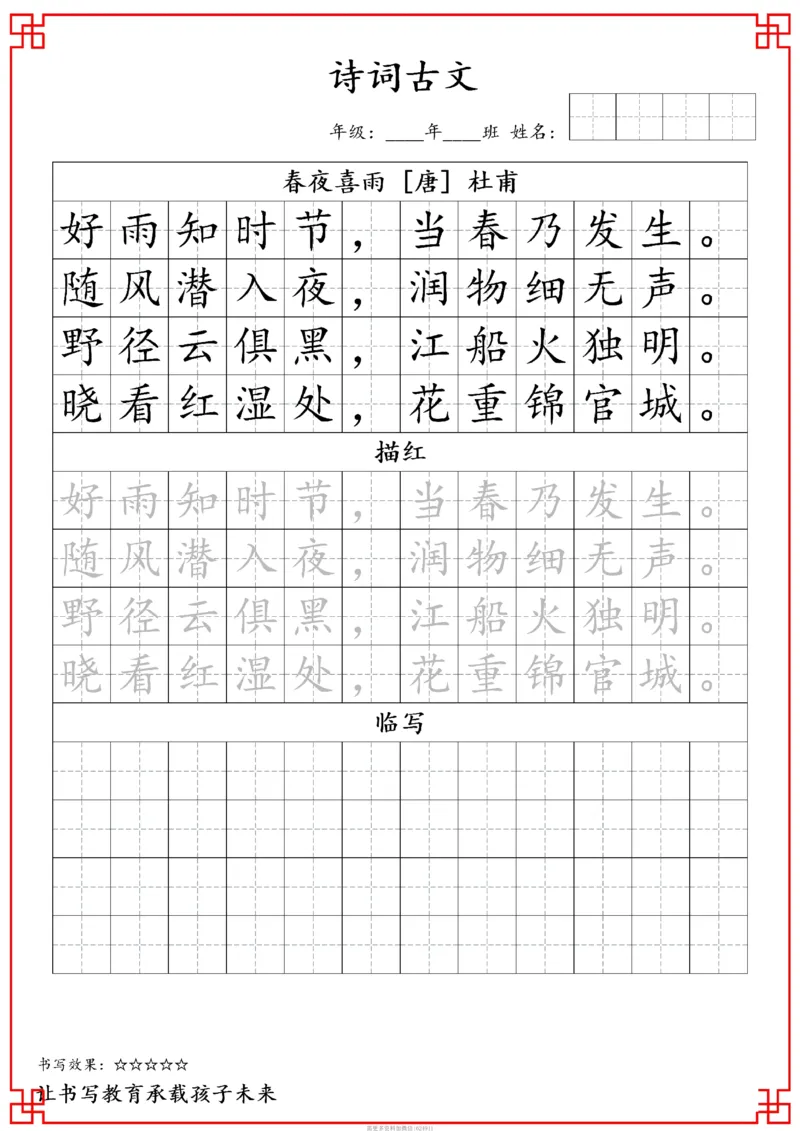 诗词古文
年级：____年____班 姓名：
春夜喜雨 [唐] 杜甫
好雨知时节，当春乃发生。
随风潜入夜，润物细无声。
野径云俱黑，江船火独明。
晓看红湿处，花重锦官城。
描红
好雨知时节，当春乃发生。
随风潜入夜，润物细无声。
野径云俱黑，江船火独明。
晓看红湿处，花重锦官城。
临写
书写效果：☆☆☆☆☆
让书写教育承载孩子未来